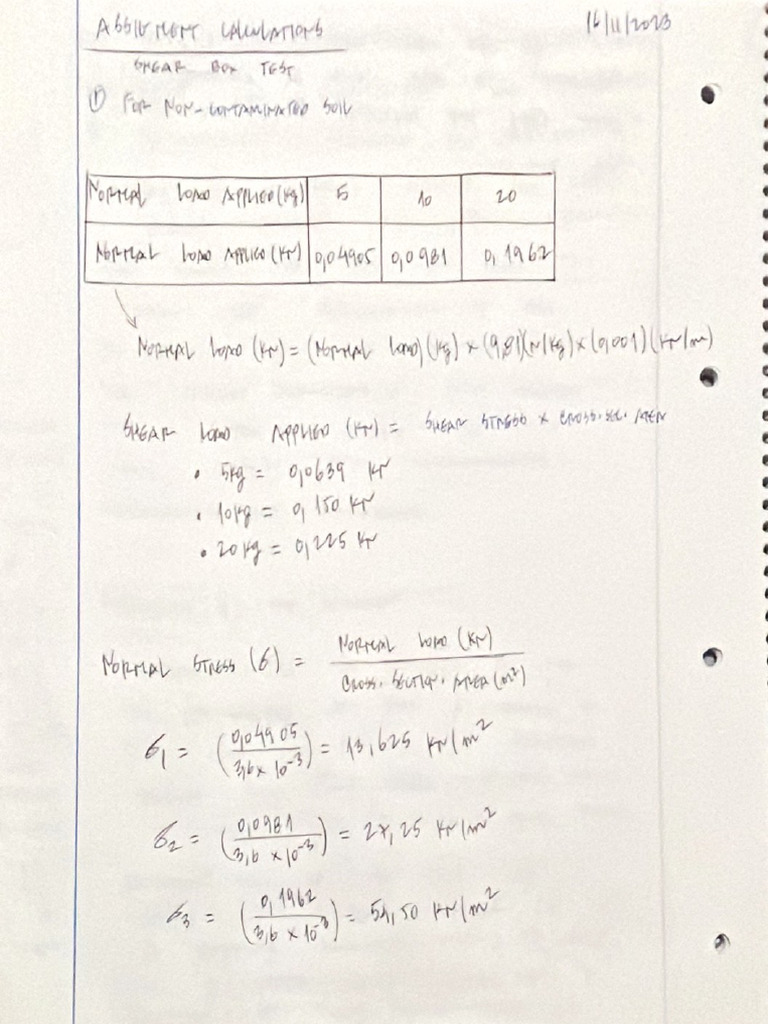 ASSIGNMENT CALCULATIONS 16/11/2023
SHEAR BOX TEST
① FOR NON-CONTAMINATED SOIL
NORMAL LOAD APPLIED (kg) 5 10 20
NORMAL LOAD APPLIED (KN) 0,04905 0,0981 0,1962
NORMAL LOAD (KN) = (NORMAL LOAD) (kg) × (9,81)(N/kg) × (0,001) (KN/m)
SHEAR LOAD APPLIED (KN) = SHEAR STRESS × CROSS.SEC. AREA
• 5kg = 0,0639 KN
• 10kg = 0,150 KN
• 20kg = 0,225 KN
NORMAL STRESS (σ) = NORMAL LOAD (KN)
CROSS. SECTION. AREA (m²)
σ₁ = (0,04905 / 3,6 × 10⁻³) = 13,625 KN/m²
σ₂ = (0,0981 / 3,6 × 10⁻³) = 27,25 KN/m²
σ₃ = (0,1962 / 3,6 × 10⁻³) = 54,50 KN/m²